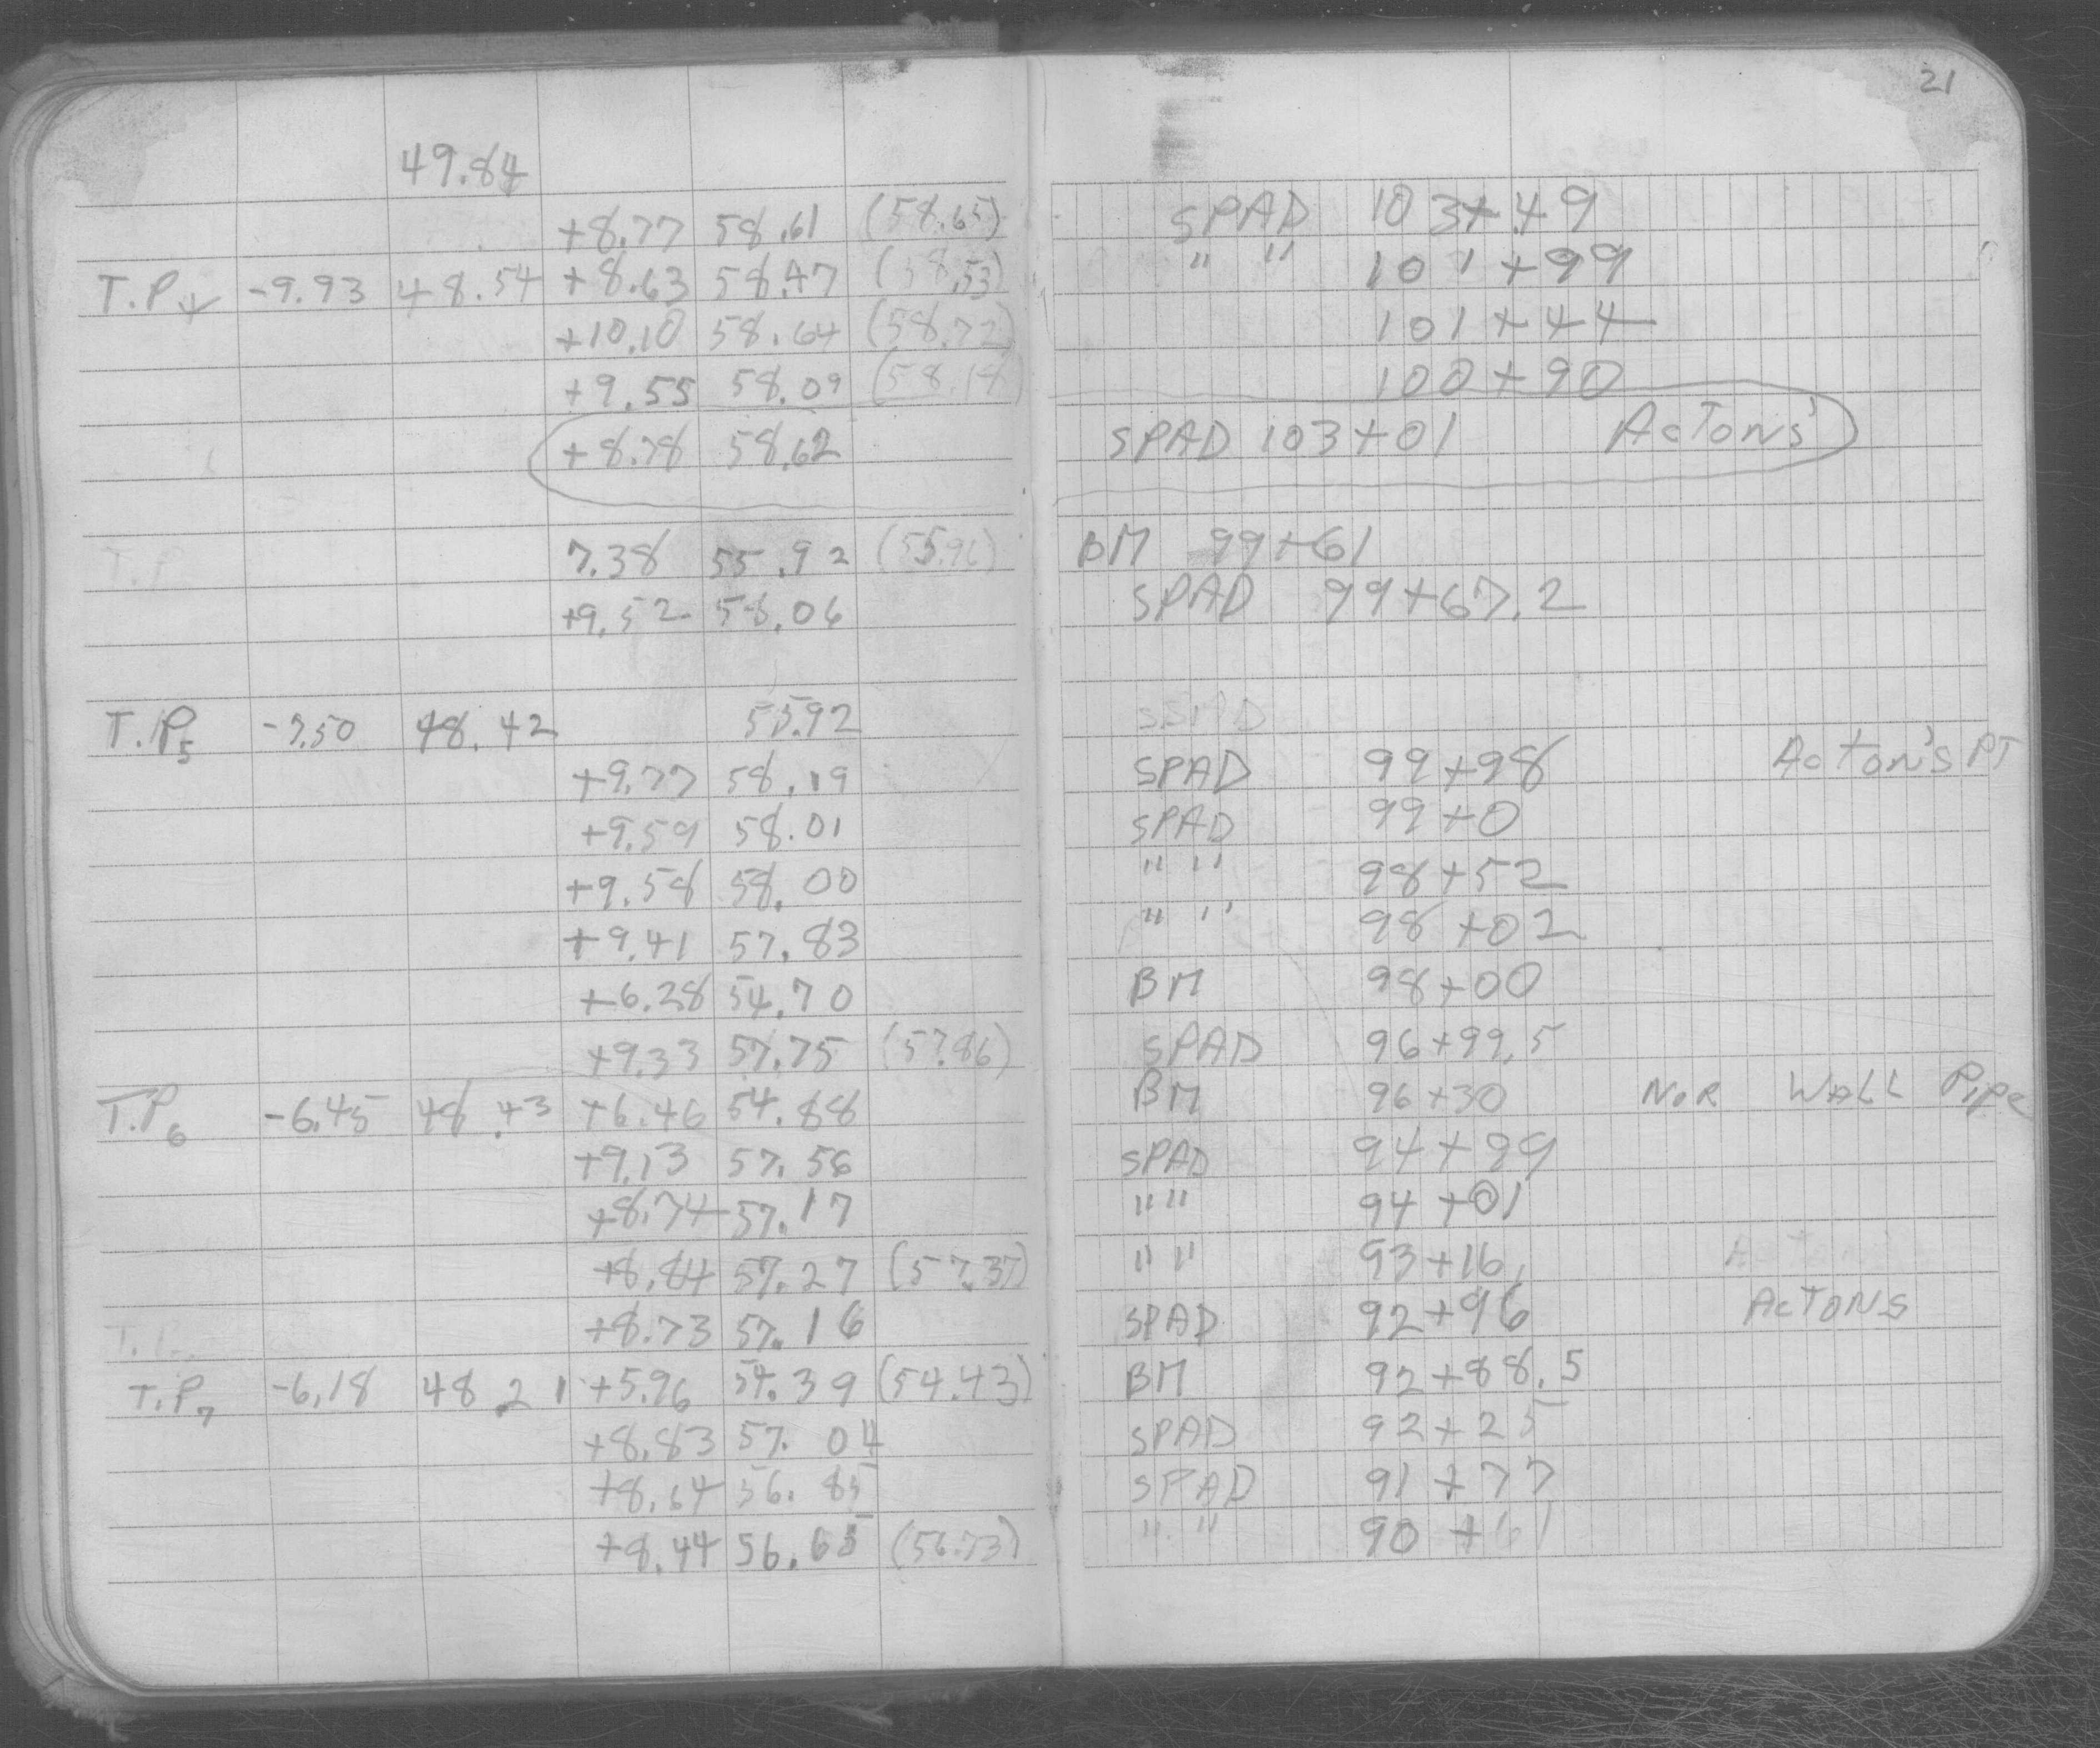 21
49.84
+8.77 58.61 (58.65) SPAD 103+49
T.P4 -9.93 48.54 +8.63 58.47 (58.53) " " 101+99
+10.10 58.64 (58.72) 101+44
+9.55 58.09 (58.18) 100+90
+8.78 58.62 SPAD 103+01 AcTons'
T.P 7.38 55.92 (55.96) BM 99+61
+9.52 58.06 SPAD 99+67.2
T.P5 -7.50 48.42 55.92
+9.77 58.19 SPAD 99+98 Acton's PT
+9.59 58.01 SPAD 99+0
+9.58 58.00 " " 98+52
+9.41 57.83 " " 98+02
+6.28 54.70 BM 98+00
+9.33 57.75 (57.86) SPAD 96+99.5
T.P6 -6.45 48.43 +6.46 54.88 BM 96+30 NoR WALL Pipe
+9.13 57.56 SPAD 94+99
+8.74 57.17 " " 94+01
+8.84 57.27 (57.37) " " 93+16
+8.73 57.16 SPAD 92+96 AcTONS
T.P7 -6.18 48.21 +5.96 54.39 (54.43) BM 92+88.5
+8.83 57.04 SPAD 92+25
+8.64 56.85 SPAD 91+77
+8.44 56.65 (56.73) " " 90+61